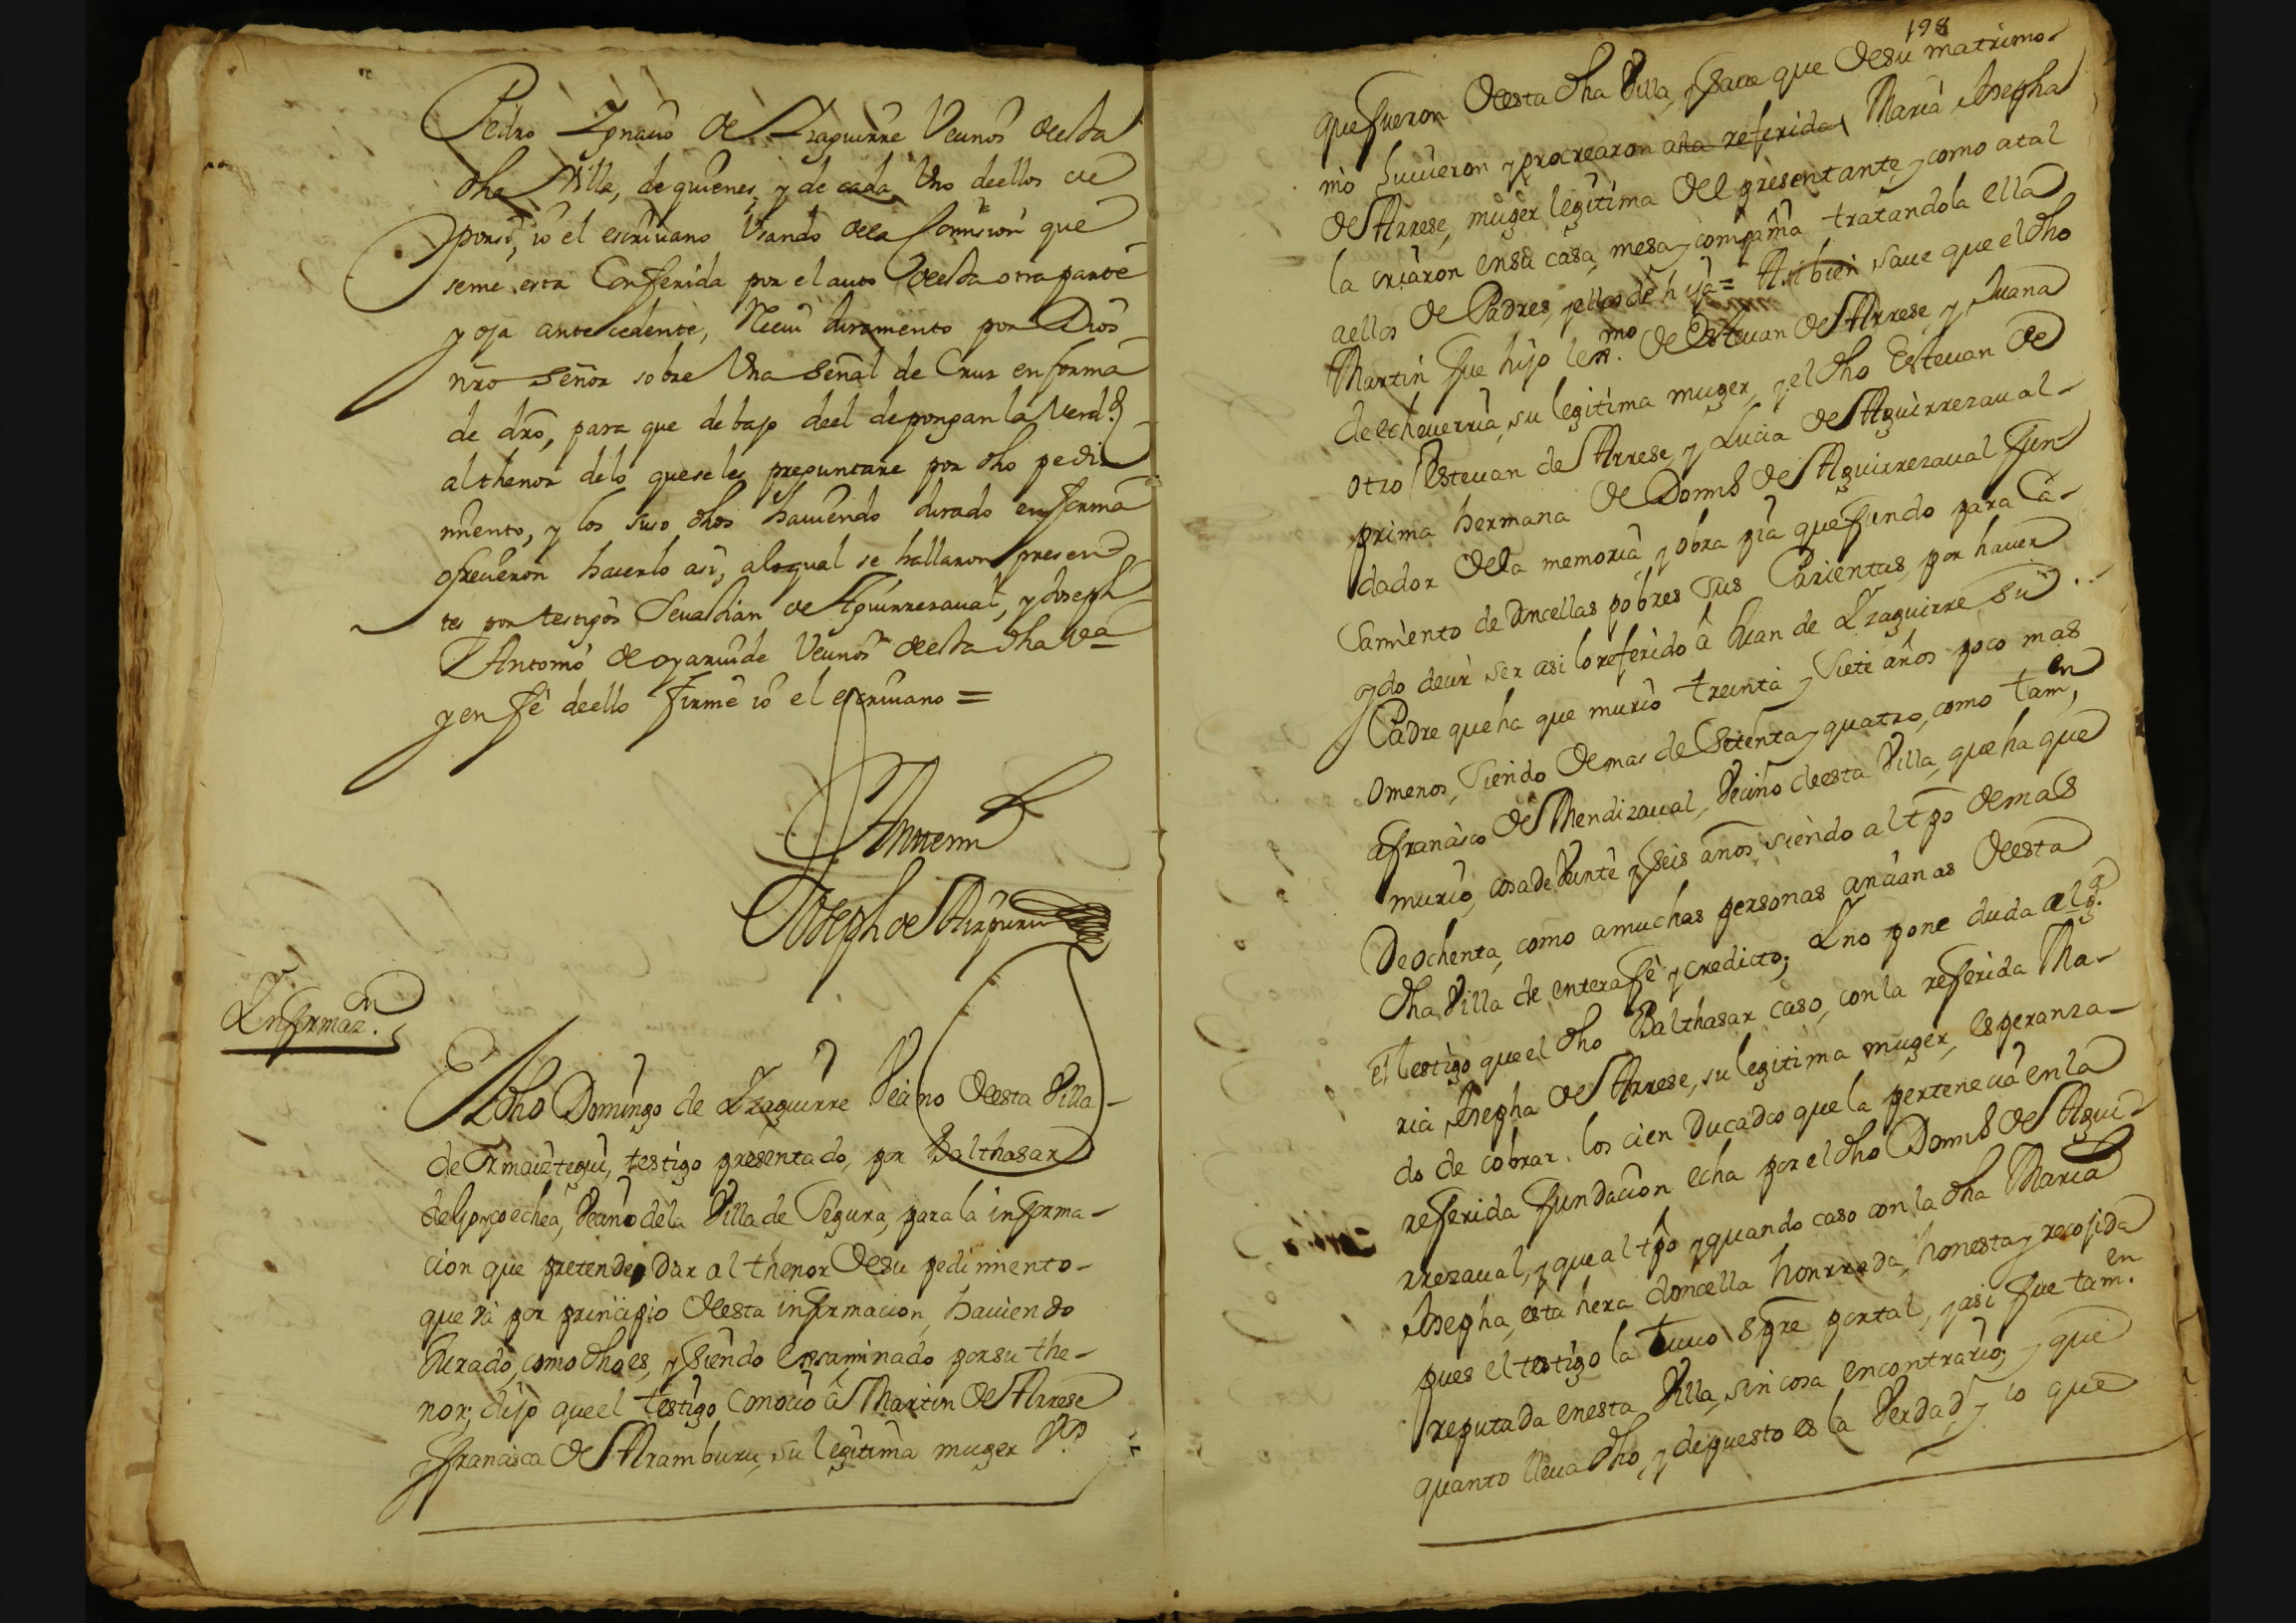 Pedro Ygnacio de Yzaguirre Vecinos desta
dha Villa, de quienes, y de cada Uno de ellos de
por si, io el escriuano Usando dela Comision que
seme esta Conferida por el auto desta otra parte
y oja antecedente, Reciui Juramento por Dios
nro Señor sobre Una Señal de Cruz en forma
de dro, para que debajo deel depongan la Verd.d
al thenor delo que seles preguntare por dho pedi-
miento, y los suso dhos hauiendo Jurado en forma
ofrecieron hacerlo asi, alo qual se hallaron presen-
tes por testigos Seuastian de Aguirrezaual, y Joseph
Antonio de oyaruide Vecinos desta dha Va
y en fè deello firmè io el escriuano =
Antemi
Joseph de Aizpuru
Ynformaz.n
El dho Domingo de Yzaguirre Vecino desta Villa
de Ormaiztegui, testigo presentado, por Balthasar
de Goycoechea, Vecino dela Villa de Segura, para la informa-
cion que pretende dar al thenor de su pedimiento
que và por principio desta informacion, hauiendo
Jurado, como dho es, y siendo examinado por su the-
nor; dijo que el testigo Conociò à Martin de Arrese
y francisca de Aramburu, su legitima muger Vs
198
que fueron desta dha Villa, y saue que de su matrimo-
nio huuieron y procrearon a la referida Maria Josepha
de Arrese, muger legitima del presentante, y como atal
la criaron en su casa, mesa y compañia tratandola ella
aellos de Padres, y ellos de hija = Asi bien saue que el dho
Martin fue hijo lexmo. de Esteuan de Arrese, y Juana
de etcheuerria, su legitima muger, y el dho Esteuan de
otro Esteuan de Arrese, y Lucia de Aguirrezaual-
prima hermana de Domo de Aguirrezaual fun-
dador dela memoria, y obra pia que fundo para Ca-
samiento de doncellas pobres sus Parientas, por hauer
oydo decir ser asi lo referido à Juan de Yzaguirre, su
Padre que ha que muriò treinta y siete años poco mas
omenos, siendo de mas de setenta y quatro, como tamen
a francisco de Mendizaual, Vecino de esta Villa, que ha que
muriò, cosa de Veinte y seis años, siendo al tpo de mas
de ochenta, como a muchas personas ancianas desta
dha Villa de entera fè y credito; Y no pone duda alg.a
el testigo que el dho Balthasar caso, con la referida Ma-
ria Josepha de Arrese, su legitima muger, esperanza-
do de cobrar los cien ducados que la pertenecia en la
referida fundacion echa por el dho Domo de Agui-
rrezaual, y que al tpo y quando caso con la dha Maria
Josepha, esta hera doncella honrrada, honesta y recojida
pues el testigo la tuuo spre por tal, y asi fue tamen.
reputada en esta Villa, sin cosa en contrario, y que
quanto lleua dho, y depuesto es la Verdad, y lo que